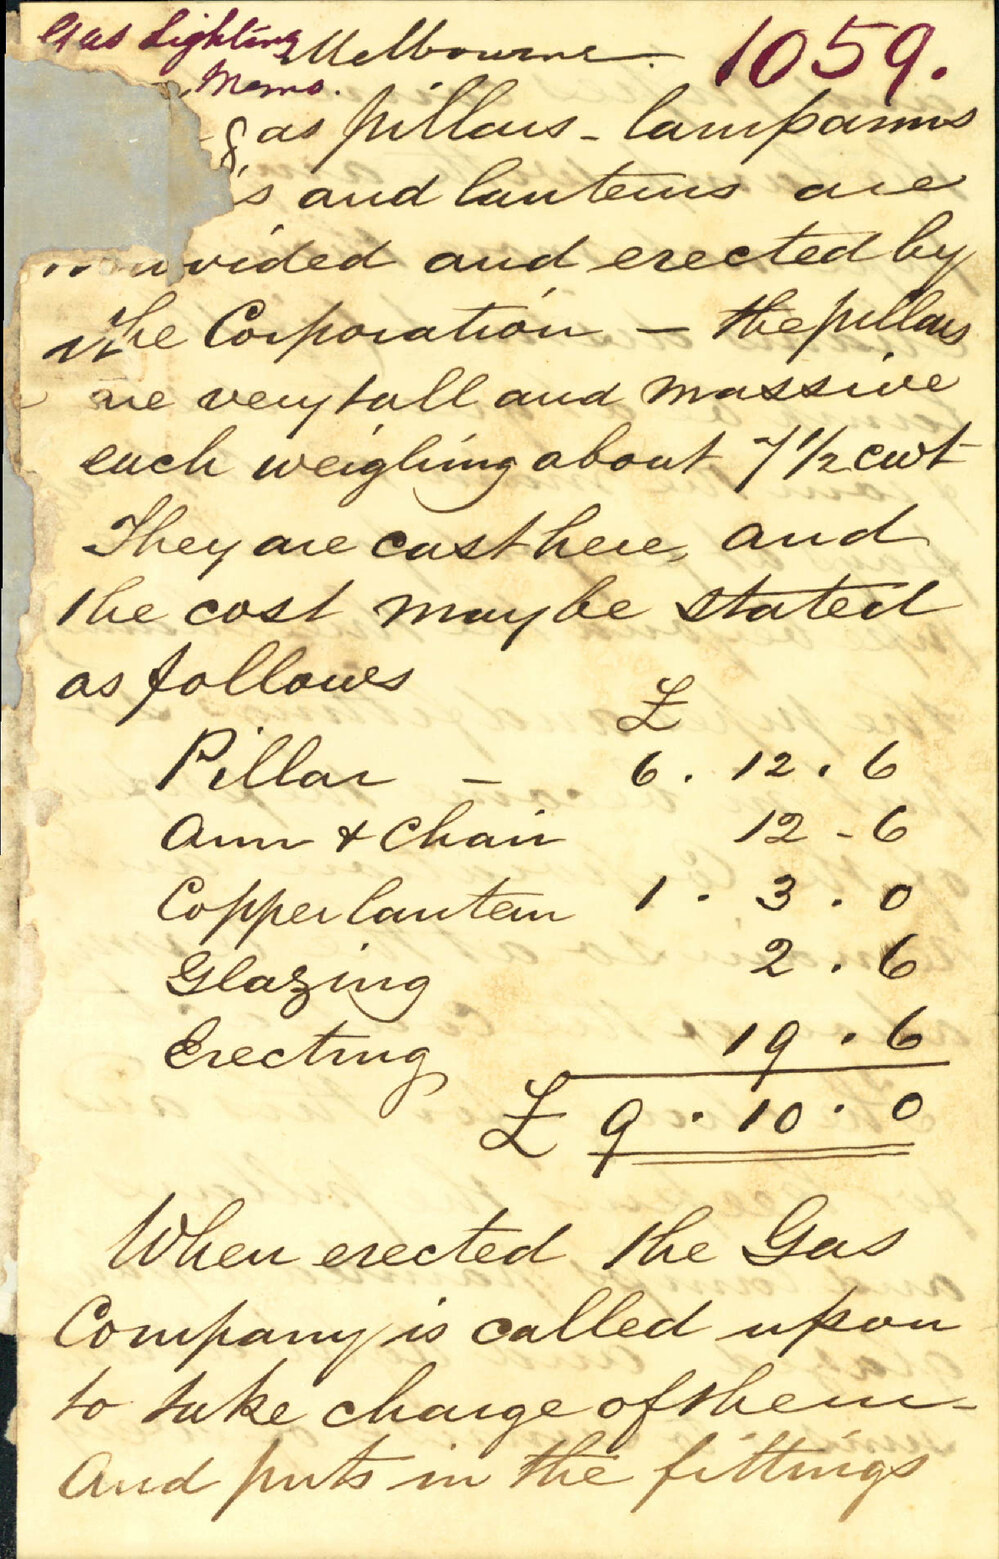 Gas Lighting Melbourne. 1059.
Memo.
gas pillars - lamp arms
and lanterns are
provided and erected by
the Corporation - the pillars
are very tall and massive
each weighing about 7 1/2 cwt
They are cast here, and
the cost may be stated
as follows
£
Pillar - 6 . 12 . 6
Arm & Chair 12 - 6
Copper lantern 1 . 3 . 0
Glazing 2 . 6
Erecting 19 . 6
£ 9 . 10 . 0
When erected the Gas
Company is called upon
to take charge of them -
and puts in the fittings